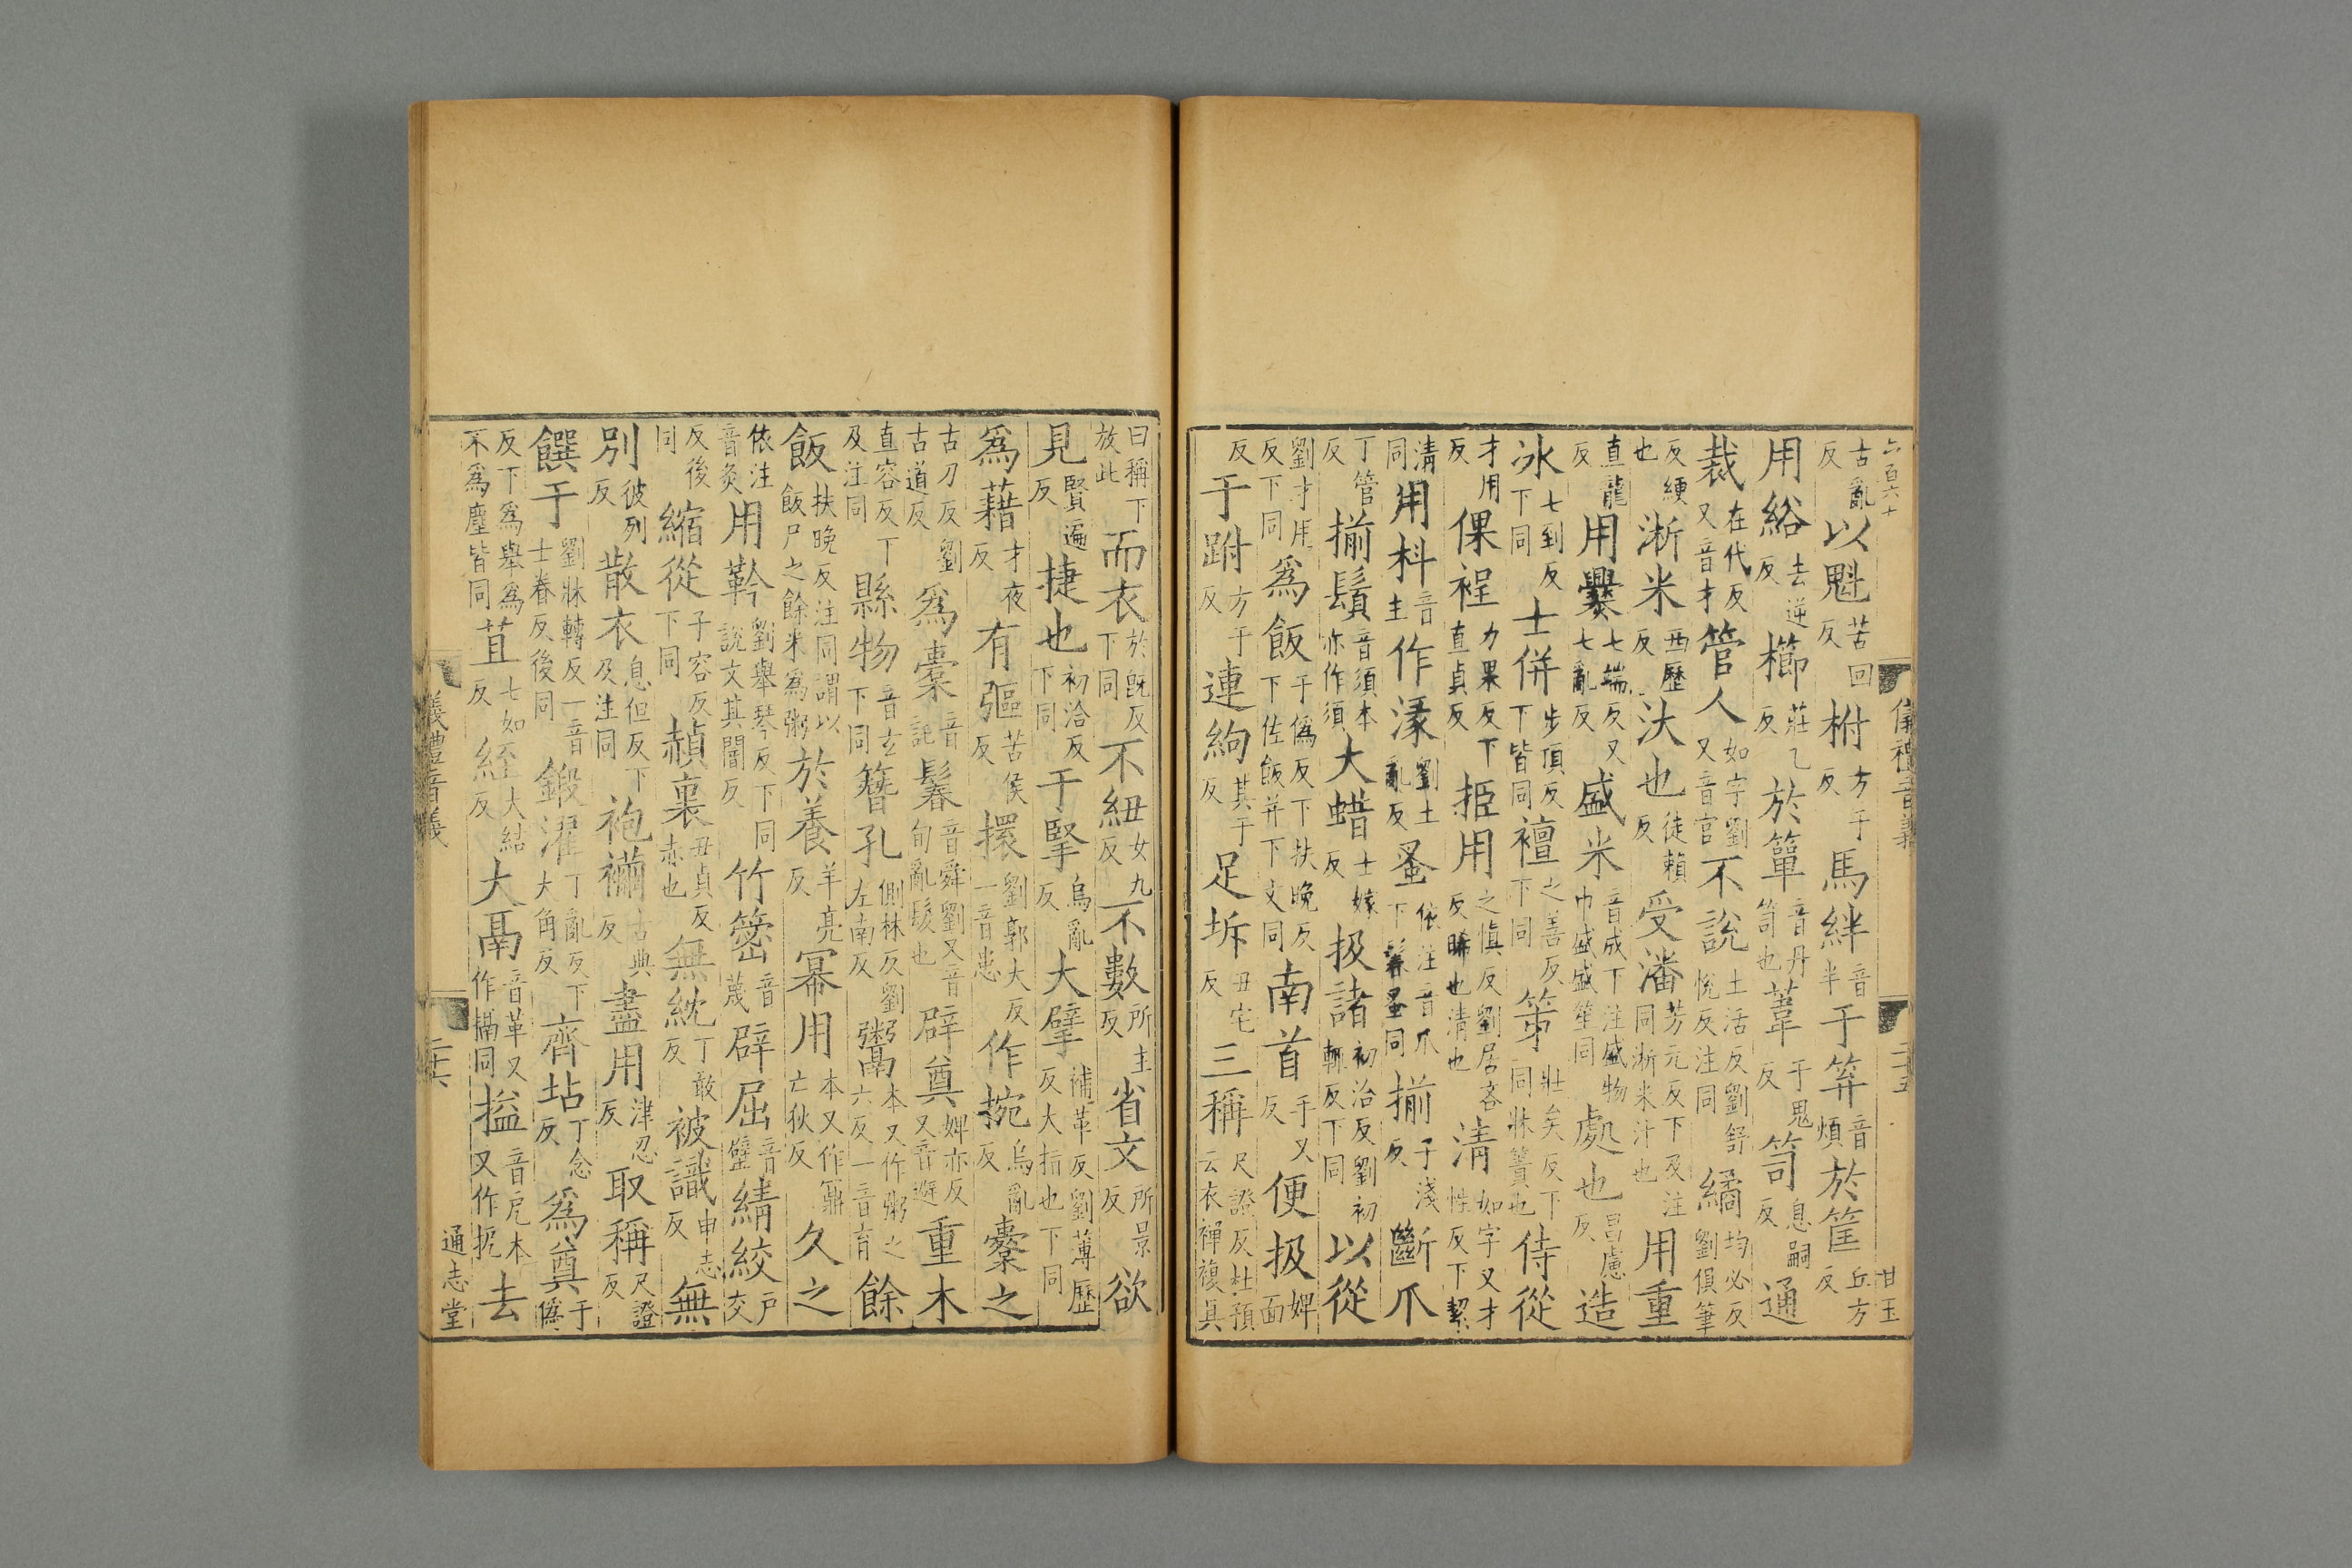 六百六十 儀禮音義 二十五 甘玉
古亂反以魁苦回反柎方于反馬絆音半于笲音煩於筐丘方反
用綌去逆反櫛莊乙反於簞音丹笥也葦于鬼反笥息嗣反通
裁在代反又音才管人如字劉又音官不說土活反劉舒悅反注同繘均必反劉俱筆
反綆也淅米西歷反汏也徒賴反受潘芳元反下及注同淅米汁也用重
直龍反用爨七端反又七亂反盛米音成下注盛物巾盛盛笙同處也昌慮反造
冰七到反下同士併步頂反下皆同襢之善反下同第壯矣反下同牀簀也侍從
才用反倮裎力果反下直貞反挋用之愼反劉居吝反晞也清也淸如字又才性反下絜
淸同用枓音主作湪劉土亂反蚤依注音爪下鬊蚤同揃子淺反斷爪
丁管反揃鬚音須本亦作須大蜡士嫁反扱諸初洽反劉初輒反下同以從
劉才用反下同爲飯于僞反下扶晚反下佐飯幷下文同南首手又反便扱婢面
反于跗方于反連絇其于反足坼丑宅反三稱尺證反杜預云衣襌複具
曰稱下放此而衣於旣反下同不紐女九反不數所主反省文所景反欲
見賢遍反捷也初洽反下同于掔烏亂反大擘補革反劉薄歷反大指也下同
爲藉才夜反有彄苦侯反擐劉郭大反一音患作捥烏亂反櫜之
古刀反劉古道反爲橐音託鬊音舜劉又音旬亂髮也辟奠婢亦反又音避重木
直容反下及注同縣物音玄下同簪孔側林反劉左南反鬻本又作粥之六反一音育餘
飯扶晚反注同謂以飯尸之餘米爲粥於養羊亮反冪用本又作鼏亡狄反久之
依注音灸用䩞劉舉琴反下同說文其闇反竹䈼音蔑辟屈音璧綪絞戶交
反後同縮從子容反下同赬裏丑貞反赤也無紞丁敢反被識申志反無
別彼列反散衣息但反下及注同袍襺古典反盡用津忍反取稱尺證反
饌于劉牀轉反一音士眷反後同鍛濯丁亂反下大角反齊坫丁念反爲奠于僞
反下爲舉爲不爲塵皆同苴七如反絰大結反大鬲音革又作搹同搤音戹本又作扼去
儀禮音義 二十六 通志堂